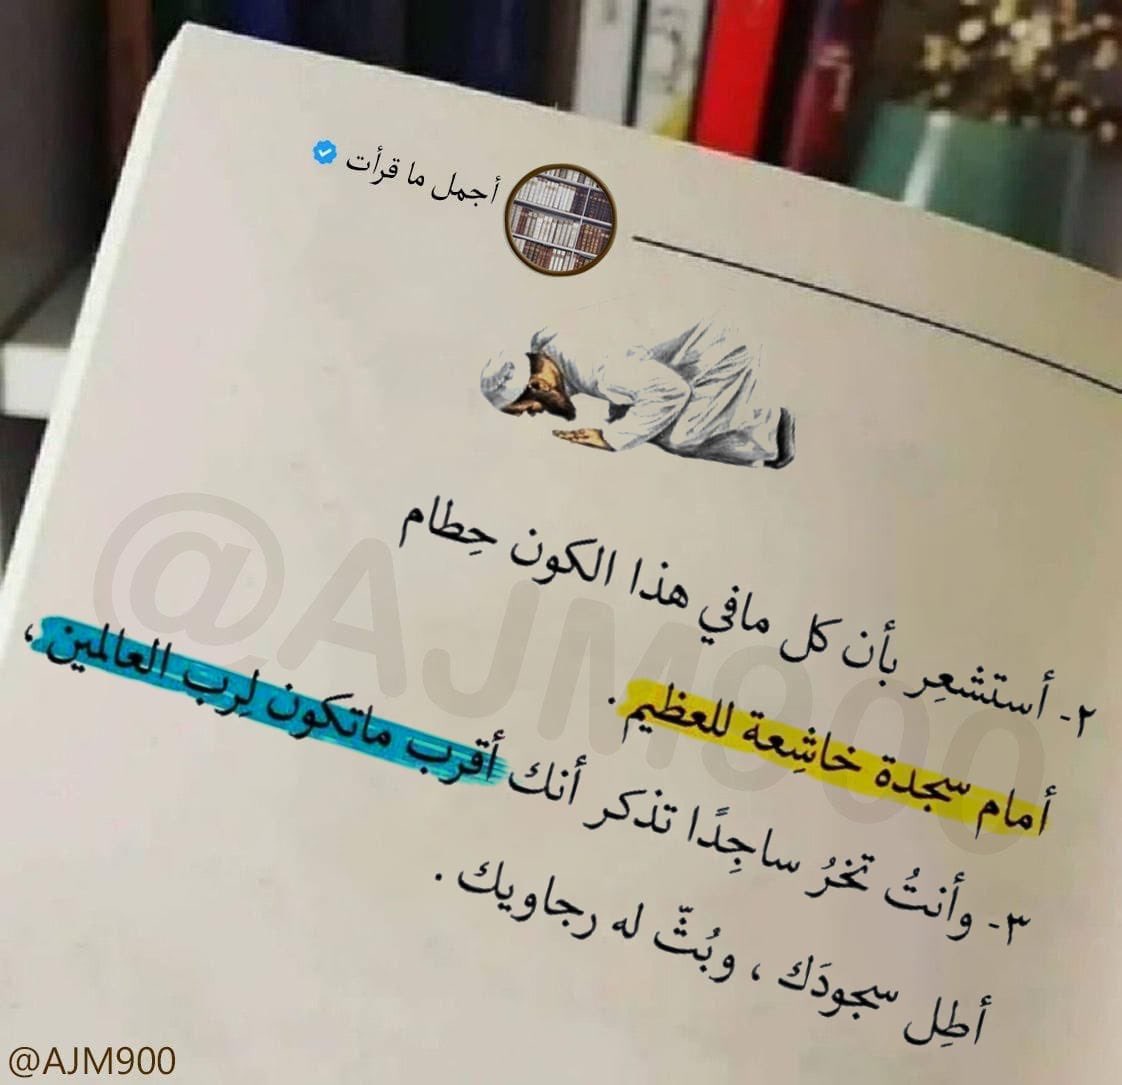 أجمل ما قرأت
٢- أستشعِر بأن كل مافي هذا الكون حِطام
أمام سجدة خاشِعة للعظيم .
٣- وأنتُ تخرُ ساجِدًا تذكر أنك أقرب ماتكون لِرب العالمين ،
أطِل سجودَك ، وبُثّ له رجاويك .
@AJM900
@AJM900